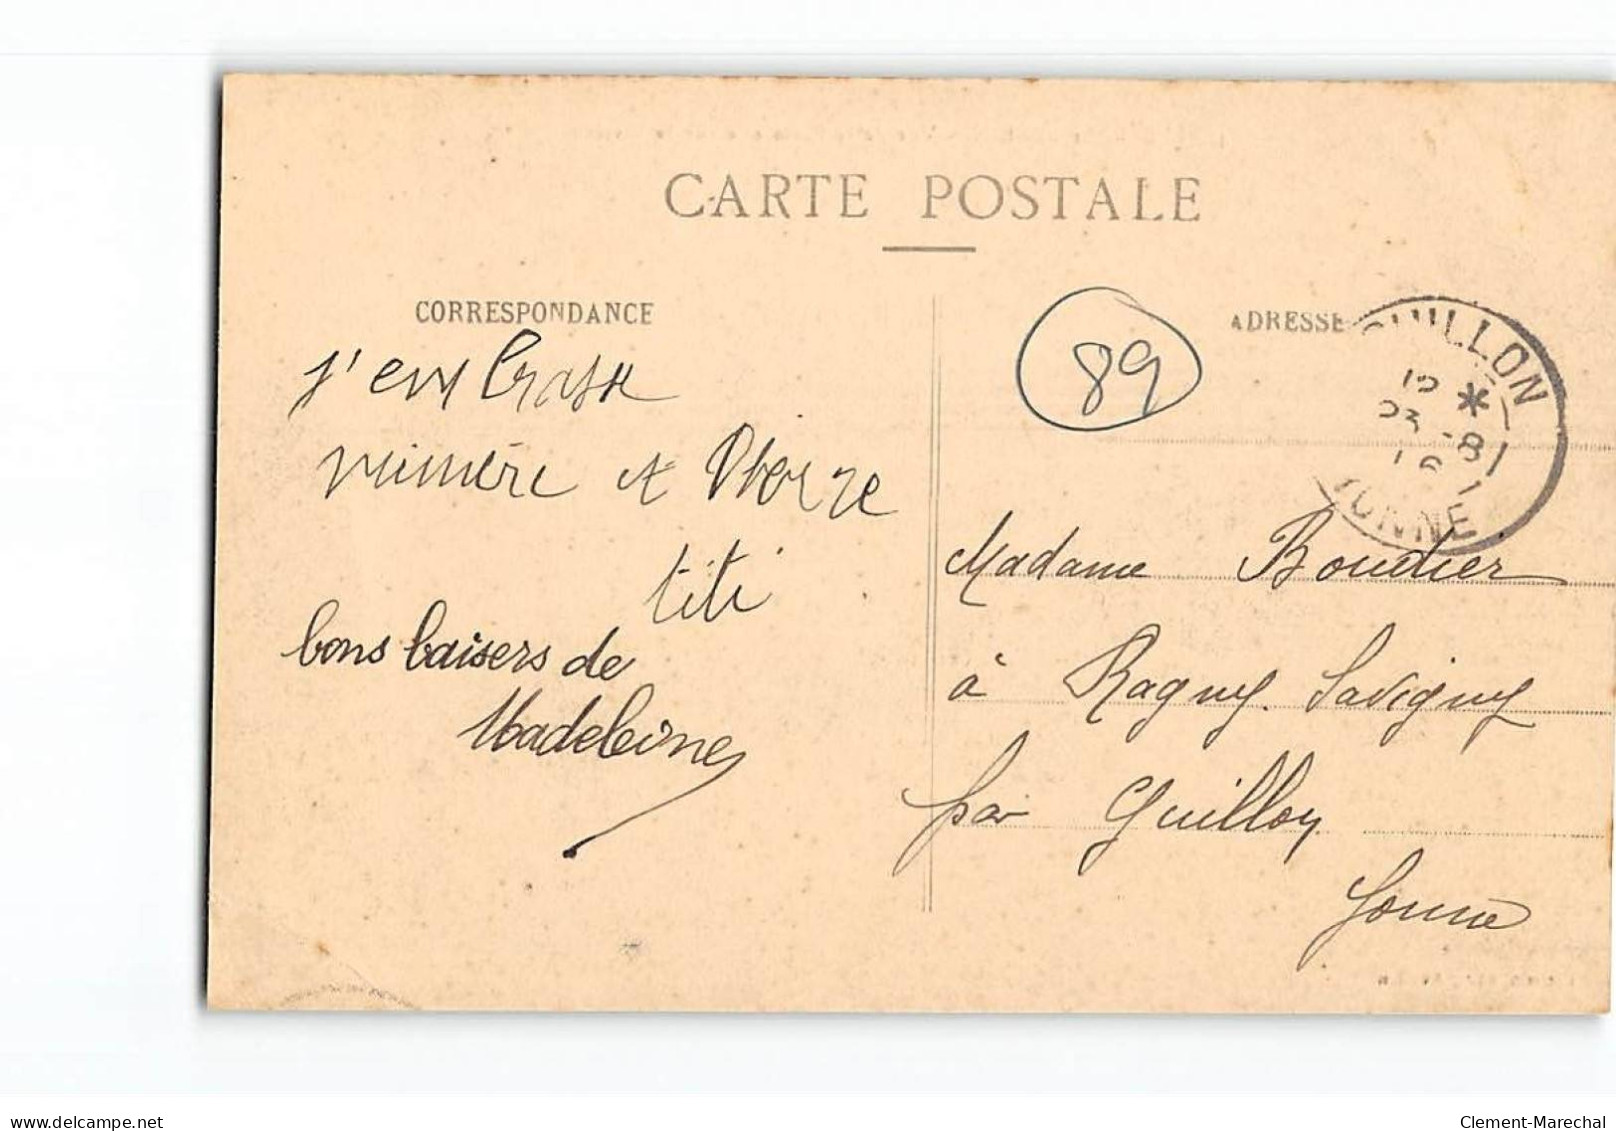 CARTE POSTALE
CORRESPONDANCE
ADRESSE
89
GUILLON
*
-8
YONNE
j'embrasse
mimère et
titi
bons baisers de
Madeleine
Madame Boudier
à Ragny. Savigny
par Guillon
Yonne
www.delcampe.net
Clement-Marechal